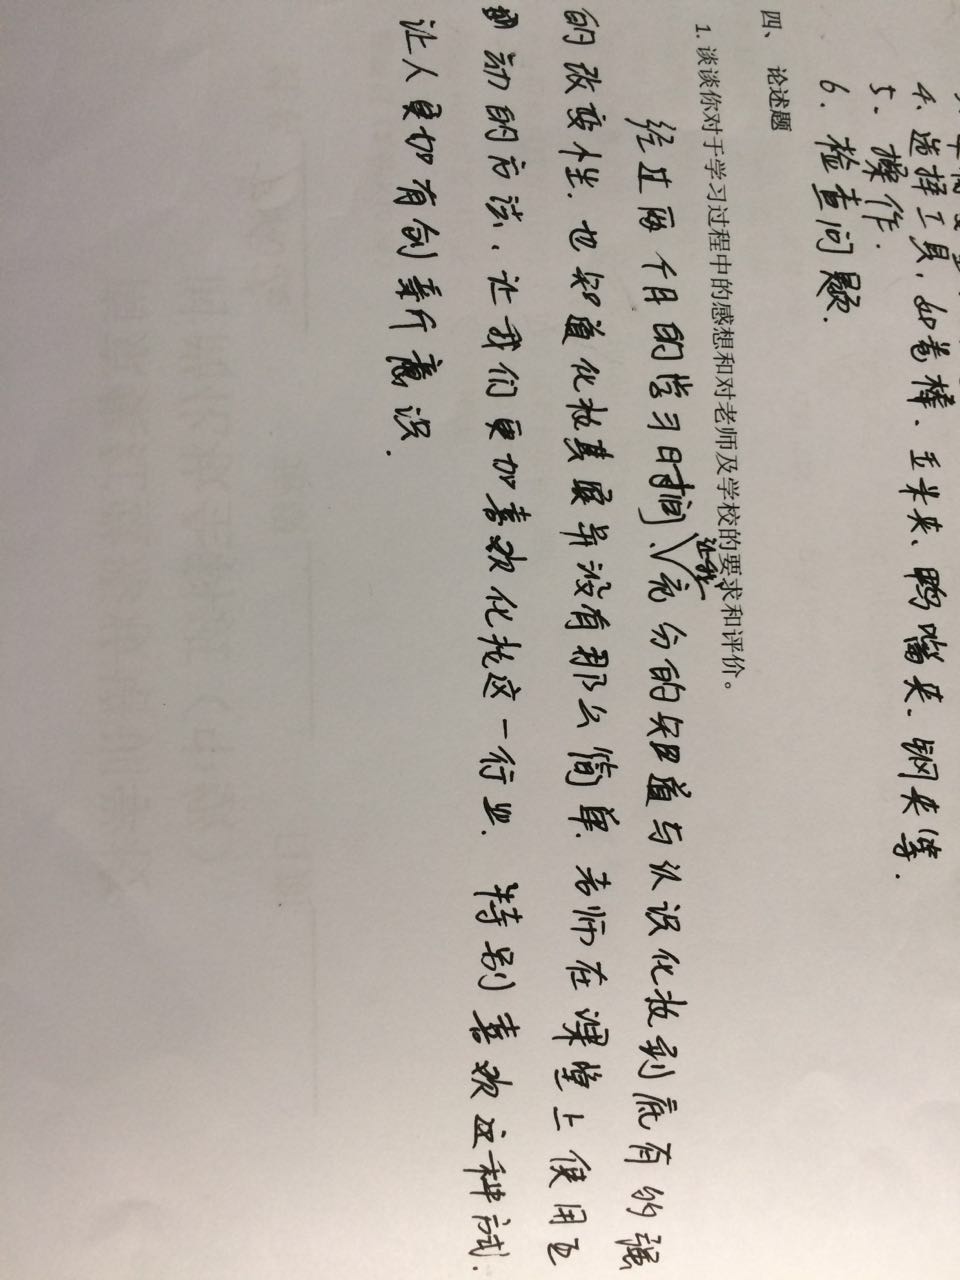 4. 选择工具，如卷棒、玉米夹、鸭嘴夹、钢夹等.
5. 操作.
6. 检查问题.
四、 论述题
1. 谈谈你对于学习过程中的感想和对老师及学校的要求和评价。
经过两个月的学习时间、让我充分的知道与认识化妆到底有多强
的改变性. 也知道化妆其实并没有那么简单. 老师在课堂上使用互
动的方法、让我们更加喜欢化妆这一行业. 特别喜欢这种方式.
让人更加有创新意识.